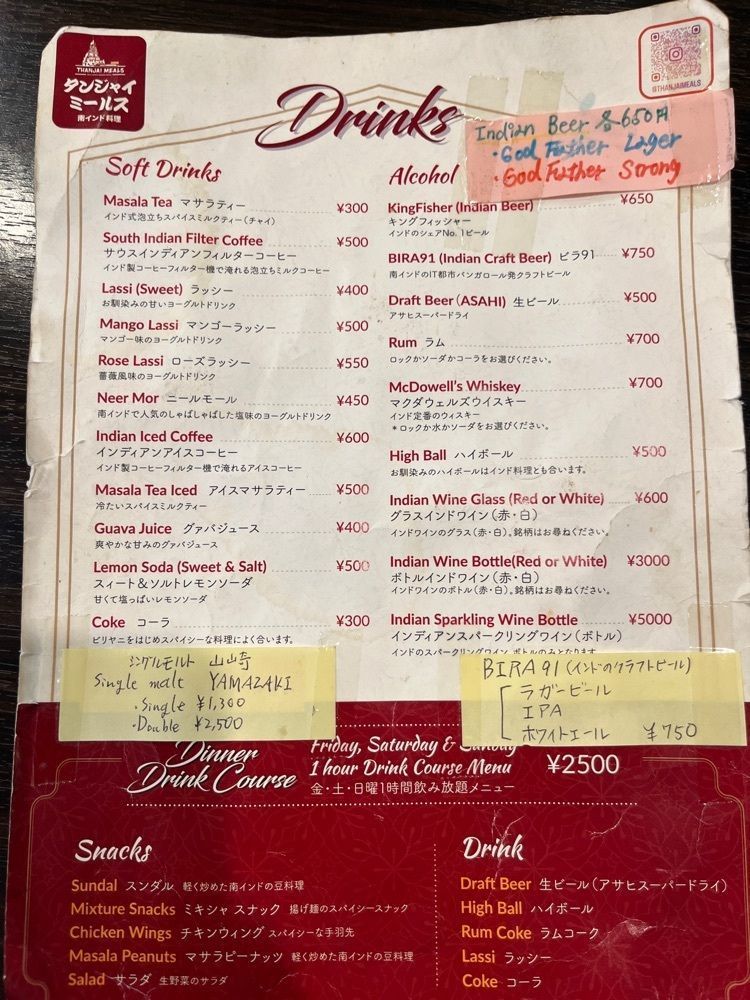 THANJAI MEALS
タンジャイ
ミールス
南インド料理
@THANJAIMEALS
Drinks
Indian Beer 各650円
・God Father Lager
・God Father Strong
Soft Drinks
Masala Tea マサラティー ¥300
インド式泡立ちスパイスミルクティー(チャイ)
South Indian Filter Coffee ¥500
サウスインディアンフィルターコーヒー
インド製コーヒーフィルター機で淹れる泡立ちミルクコーヒー
Lassi (Sweet) ラッシー ¥400
お馴染みの甘いヨーグルトドリンク
Mango Lassi マンゴーラッシー ¥500
マンゴー味のヨーグルトドリンク
Rose Lassi ローズラッシー ¥550
薔薇風味のヨーグルトドリンク
Neer Mor ニールモール ¥450
南インドで人気のしゃばしゃばした塩味のヨーグルトドリンク
Indian Iced Coffee ¥600
インディアンアイスコーヒー
インド製コーヒーフィルター機で淹れるアイスコーヒー
Masala Tea Iced アイスマサラティー ¥500
冷たいスパイスミルクティー
Guava Juice グァバジュース ¥400
爽やかな甘みのグァバジュース
Lemon Soda (Sweet & Salt) ¥500
スィート&ソルトレモンソーダ
甘くて塩っぱいレモンソーダ
Coke コーラ ¥300
ビリヤニをはじめスパイシーな料理によく合います。
Alcohol
KingFisher (Indian Beer) ¥650
キングフィッシャー
インドのシェアNo. 1ビール
BIRA91 (Indian Craft Beer) ビラ91 ¥750
南インドのIT都市バンガロール発クラフトビール
Draft Beer (ASAHI) 生ビール ¥500
アサヒスーパードライ
Rum ラム ¥700
ロックかソーダかコーラをお選びください。
McDowell's Whiskey ¥700
マクダウェルズウイスキー
インド定番のウィスキー
*ロックか水かソーダをお選びください。
High Ball ハイボール ¥500
お馴染みのハイボールはインド料理とも合います。
Indian Wine Glass (Red or White) ¥600
グラスインドワイン(赤・白)
インドワインのグラス(赤・白)。銘柄はお尋ねください。
Indian Wine Bottle(Red or White) ¥3000
ボトルインドワイン(赤・白)
インドワインのボトル(赤・白)。銘柄はお尋ねください。
Indian Sparkling Wine Bottle ¥5000
インディアンスパークリングワイン(ボトル)
インドのスパークリングワイン ボトルのみとなります
シングルモルト 山崎
Single malt YAMAZAKI
・Single ¥1,300
・Double ¥2,500
BIRA91 (インドのクラフトビール)
ラガービール
IPA
ホワイトエール ¥750
Dinner
Drink Course
Friday, Saturday & Sunday
1 hour Drink Course Menu ¥2500
金・土・日曜1時間飲み放題メニュー
Snacks
Sundal スンダル 軽く炒めた南インドの豆料理
Mixture Snacks ミキシャ スナック 揚げ麺のスパイシースナック
Chicken Wings チキンウィング スパイシーな手羽先
Masala Peanuts マサラピーナッツ 軽く炒めた南インドの豆料理
Salad サラダ 生野菜のサラダ
Drink
Draft Beer 生ビール(アサヒスーパードライ)
High Ball ハイボール
Rum Coke ラムコーク
Lassi ラッシー
Coke コーラ